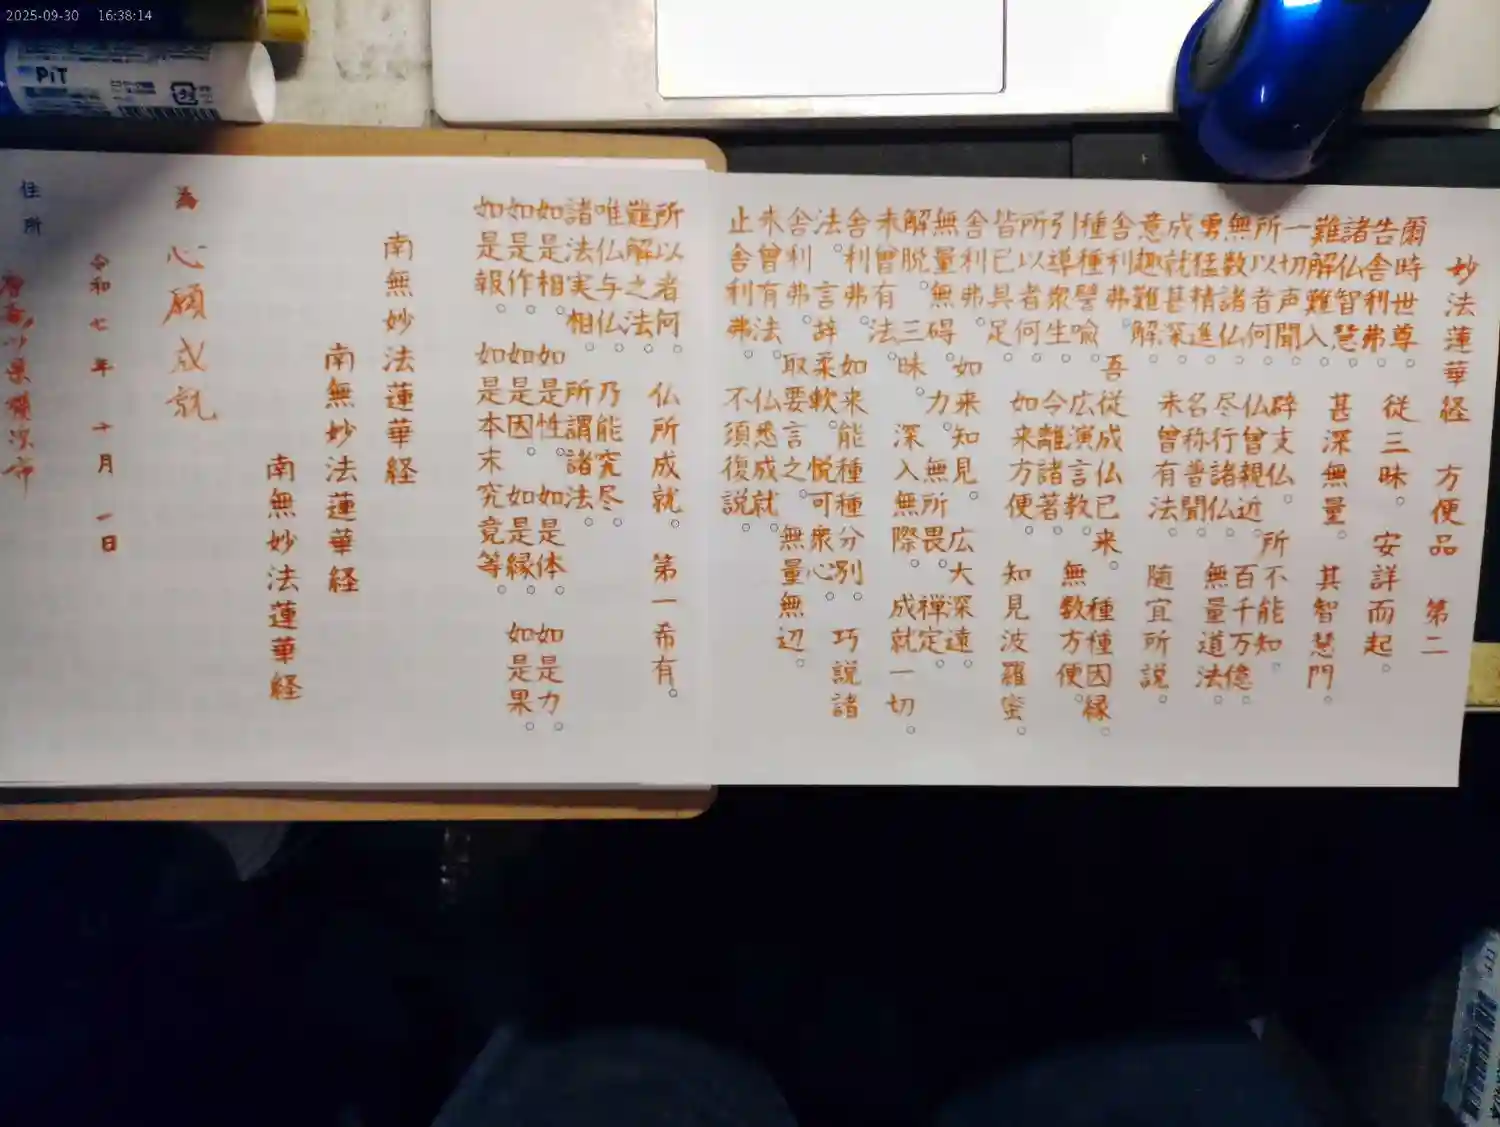 妙法蓮華経 方便品 第二
爾時世尊。従三昧。安詳而起。
告舎利弗。
諸仏智慧。甚深無量。其智慧門。
難解難入。
一切声聞。辟支仏。所不能知。
所以者何。仏曾親近。百千万億。
無数諸仏。尽行諸仏。無量道法。
勇猛精進。名称普聞。
成就甚深。未曾有法。随宜所説。
意趣難解。
舎利弗。吾従成仏已来。種種因縁。
種種譬喩。広演言教。無数方便。
引導衆生。令離諸著。
所以者何。如来方便。知見波羅蜜。
皆已具足。
舎利弗。如来知見。広大深遠。
無量無碍。力。無所畏。禅定。
解脱。三昧。深入無際。成就一切。
未曾有法。
舎利弗。如来能種種分別。巧説諸
法。言辞柔軟。悦可衆心。
舎利弗。取要言之。無量無辺。
未曾有法。仏悉成就。
止舎利弗。不須復説。
所以者何。仏所成就。第一希有。
難解之法。
唯仏与仏。乃能究尽。
諸法実相。所謂諸法。
如是相。如是性。如是体。如是力。
如是作。如是因。如是縁。如是果。
如是報。如是本末究竟等
南無妙法蓮華経
南無妙法蓮華経
南無妙法蓮華経
為 心願成就
令和七年 十月 一日
住所
2025-09-30 16:38:14
PiT